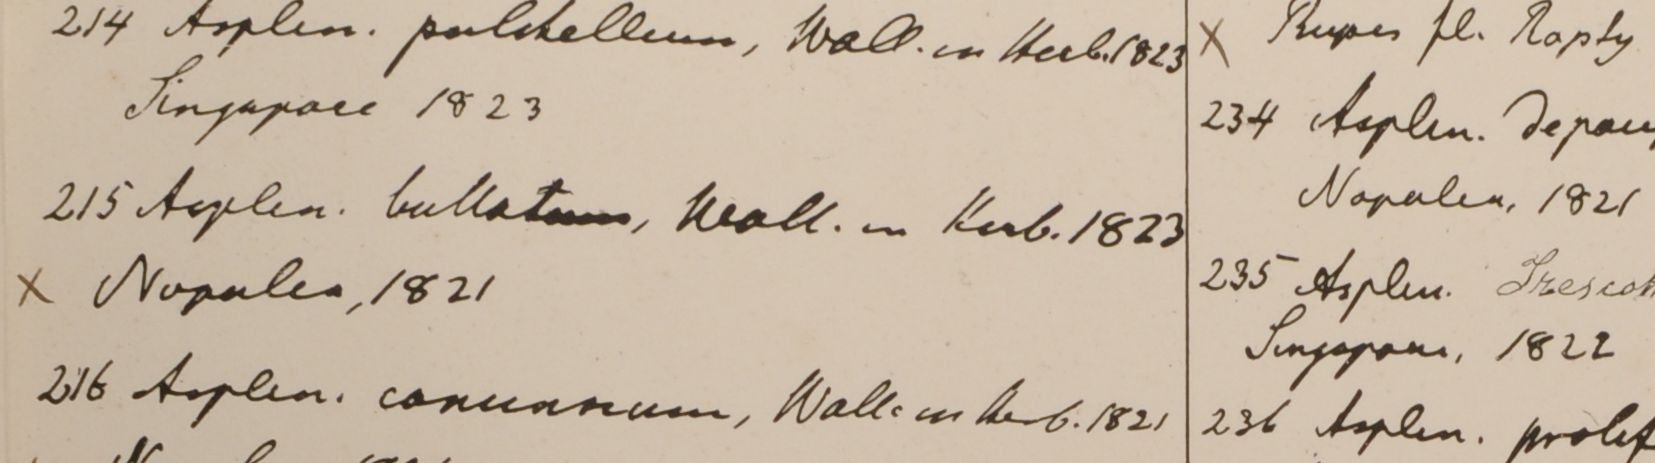 214 Asplen. pulchellum, Wall. in Herb. 1823
Singapore 1823
215 Asplen. bullatum, Wall. in Herb. 1823
x Napalia, 1821
216 Asplen. concinnum, Wall. in Herb. 1821
x Rupes fl. Rapty
234 Asplen. depau
Napalia, 1821
235 Asplen.
Singapore, 1822
236 Asplen. prolif